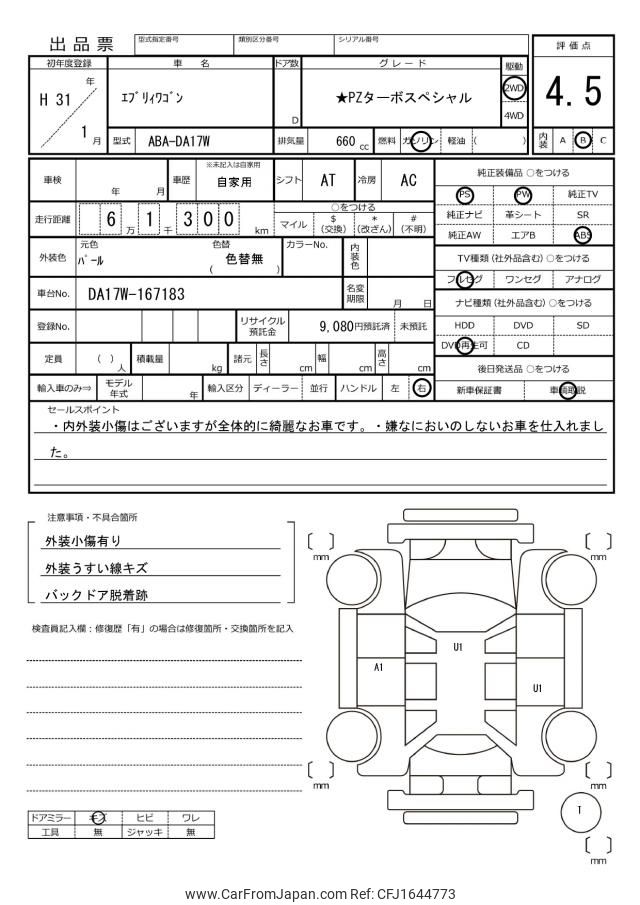 出品票
型式指定番号 類別区分番号 シリアル番号
評価点
4.5
初年度登録 車名 ドア数 グレード 駆動
H 31 年 1 月
エブリィワゴン
D
★PZターボスペシャル
2WD
4WD
型式 ABA-DA17W 排気量 660 cc 燃料 ガソリン 軽油 ( )
内装 A B C
車検 年 月 車歴 ※未記入は自家用 自家用 シフト AT 冷房 AC
走行距離 6 万 1 千 3 0 0 km
○をつける
マイル $(交換) *(改ざん) #(不明)
外装色 元色 パール 色替 ( 色替無 ) カラーNo. 内装色
車台No. DA17W-167183 名変期限 月 日
登録No. リサイクル預託金 9,080円預託済 未預託
定員 ( )人 積載量 kg 諸元 長さ cm 幅 cm 高さ cm
輸入車のみ⇒ モデル年式 年 輸入区分 ディーラー 並行 ハンドル 左 右
純正装備品 ○をつける
PS PW 純正TV
純正ナビ 革シート SR
純正AW エアB ABS
TV種類(社外品含む) ○をつける
フルセグ ワンセグ アナログ
ナビ種類(社外品含む) ○をつける
HDD DVD SD
DVD再生可 CD
後日発送品 ○をつける
新車保証書 車輌取説
セールスポイント
・内外装小傷はございますが全体的に綺麗なお車です。・嫌なにおいのしないお車を仕入れまし
た。
注意事項・不具合箇所
外装小傷有り
外装うすい線キズ
バックドア脱着跡
検査員記入欄：修復歴「有」の場合は修復箇所・交換箇所を記入
[ ] mm
[ ] mm
U1
A1
U1
[ ] mm
[ ] mm
T
[ ] mm
ドアミラー キズ ヒビ ワレ
工具 無 ジャッキ 無
www.CarFromJapan.com Ref: CFJ1644773